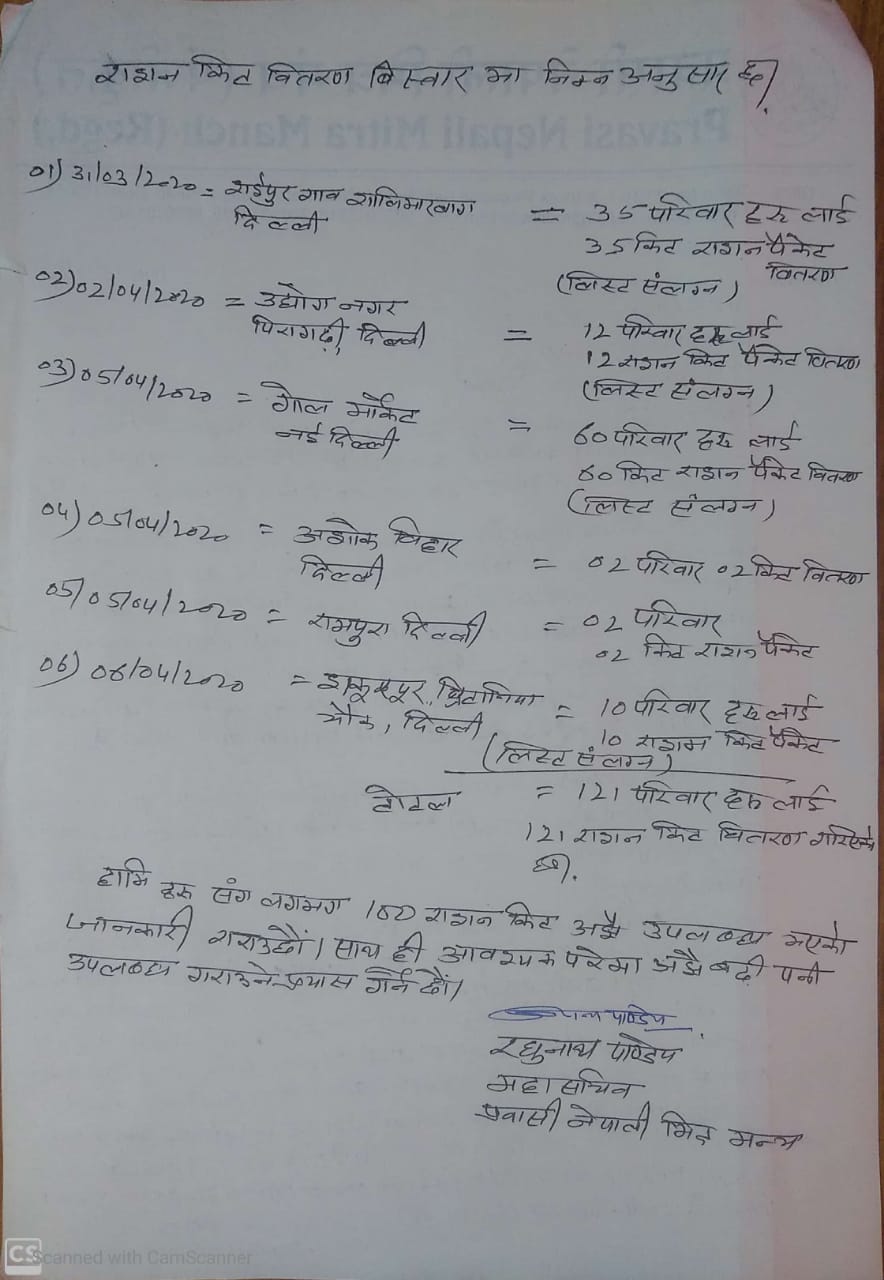 राशन किट वितरण विस्तार मा निम्न अनुसार छ।
01) 31/03/2020 = शईपुर गाव शालिमारबाग = 35 परिवार हरु लाई
दिल्ली 35 किट राशन पैकेट
वितरण
(लिस्ट संलग्न)
02) 02/04/2020 = उद्योग नगर = 12 परिवार हरु लाई
पिरागढी, दिल्ली 12 राशन किट पैकेट वितरण
(लिस्ट संलग्न)
03) 05/04/2020 = गोल मार्केट = 60 परिवार हरु लाई
नई दिल्ली 60 किट राशन पैकेट वितरण
(लिस्ट संलग्न)
04) 05/04/2020 = अशोक विहार = 02 परिवार 02 किट वितरण
दिल्ली
05) 05/04/2020 = रामपुरा दिल्ली = 02 परिवार
02 किट राशन पैकेट
06) 06/04/2020 = शकूरपूर, ब्रिटानिया = 10 परिवार हरु लाई
चौक, दिल्ली 10 राशन किट पैकेट
(लिस्ट संलग्न)
टोटल = 121 परिवार हरु लाई
121 राशन किट वितरण गरिएको
छ।
हामि हरु संग लगभग 100 राशन किट अझै उपलब्ध भएको
जानकारी गराउछौं। साथ ही आवश्यक परेमा अझै बढी पनी
उपलब्ध गराउने प्रयास गर्ने छौं।
पाण्डेय
रघुनाथ पाण्डेय
महासचिव
प्रवासी नेपाली मित्र मन्च
Pravasi Nepali Mitra Manch (Regd.)
CS Scanned with CamScanner